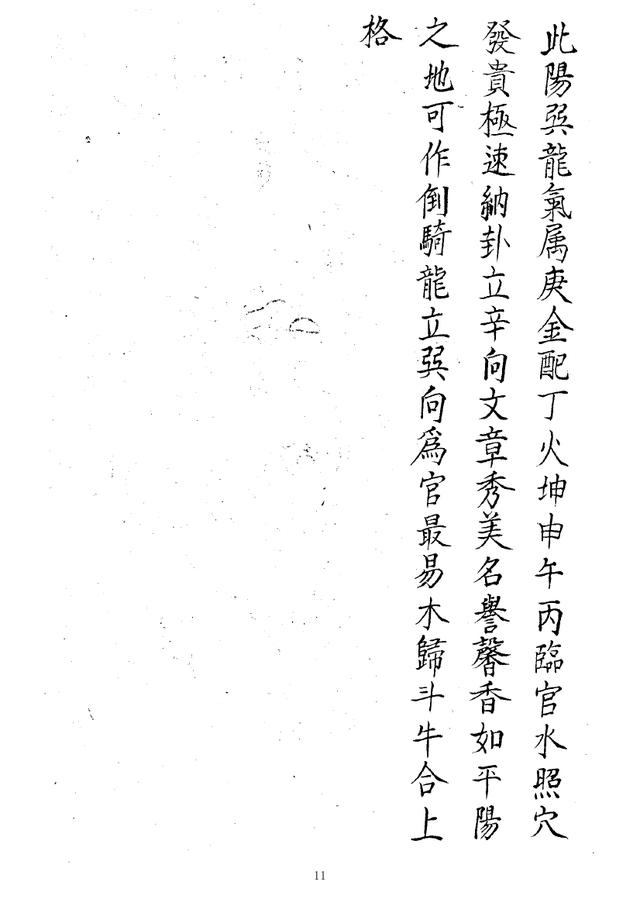 此陽巽龍氣属庚金配丁火坤申午丙臨官水照穴
發貴極速納卦立辛向文章秀美名譽馨香如平陽
之地可作倒騎龍立巽向為官最易木歸斗牛合上
格
11